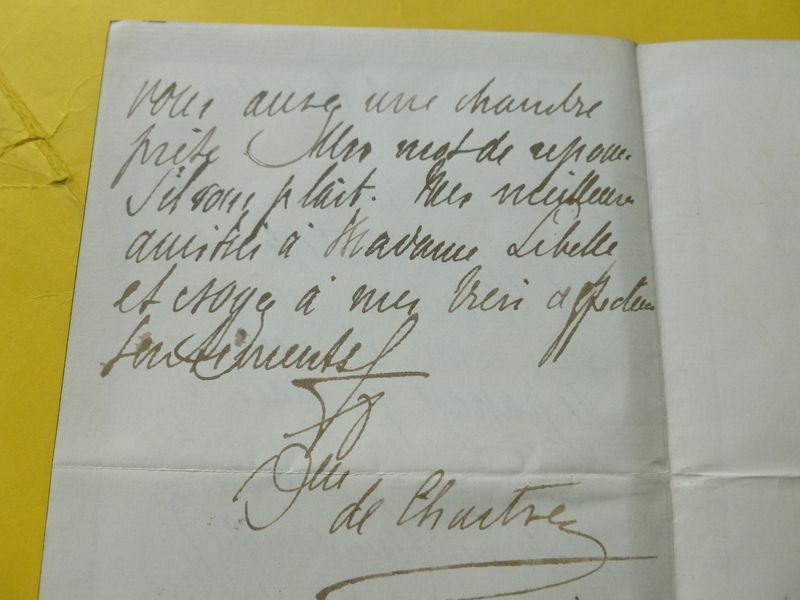 vous aurez une chambre
prête. Un mot de réponse
S'il vous plait. Mes meilleures
amitiés à Madame Libelle
et croyez à mes très affectueux
sentiments
de Chartres